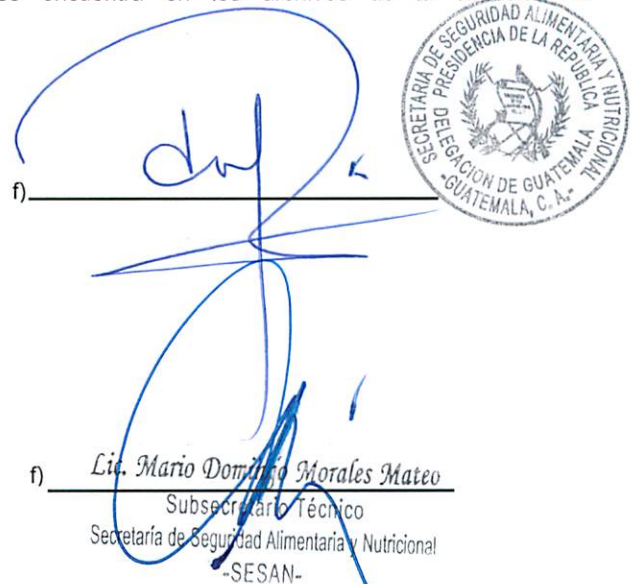 se encuentra en los archivos de la
SECRETARIA DE SEGURIDAD ALIMENTARIA Y NUTRICIONAL
PRESIDENCIA DE LA REPUBLICA
DELEGACION DE GUATEMALA
-GUATEMALA, C. A.-
f)
f) Lic. Mario Domingo Morales Mateo
Subsecretario Técnico
Secretaría de Seguridad Alimentaria y Nutricional
-SESAN-